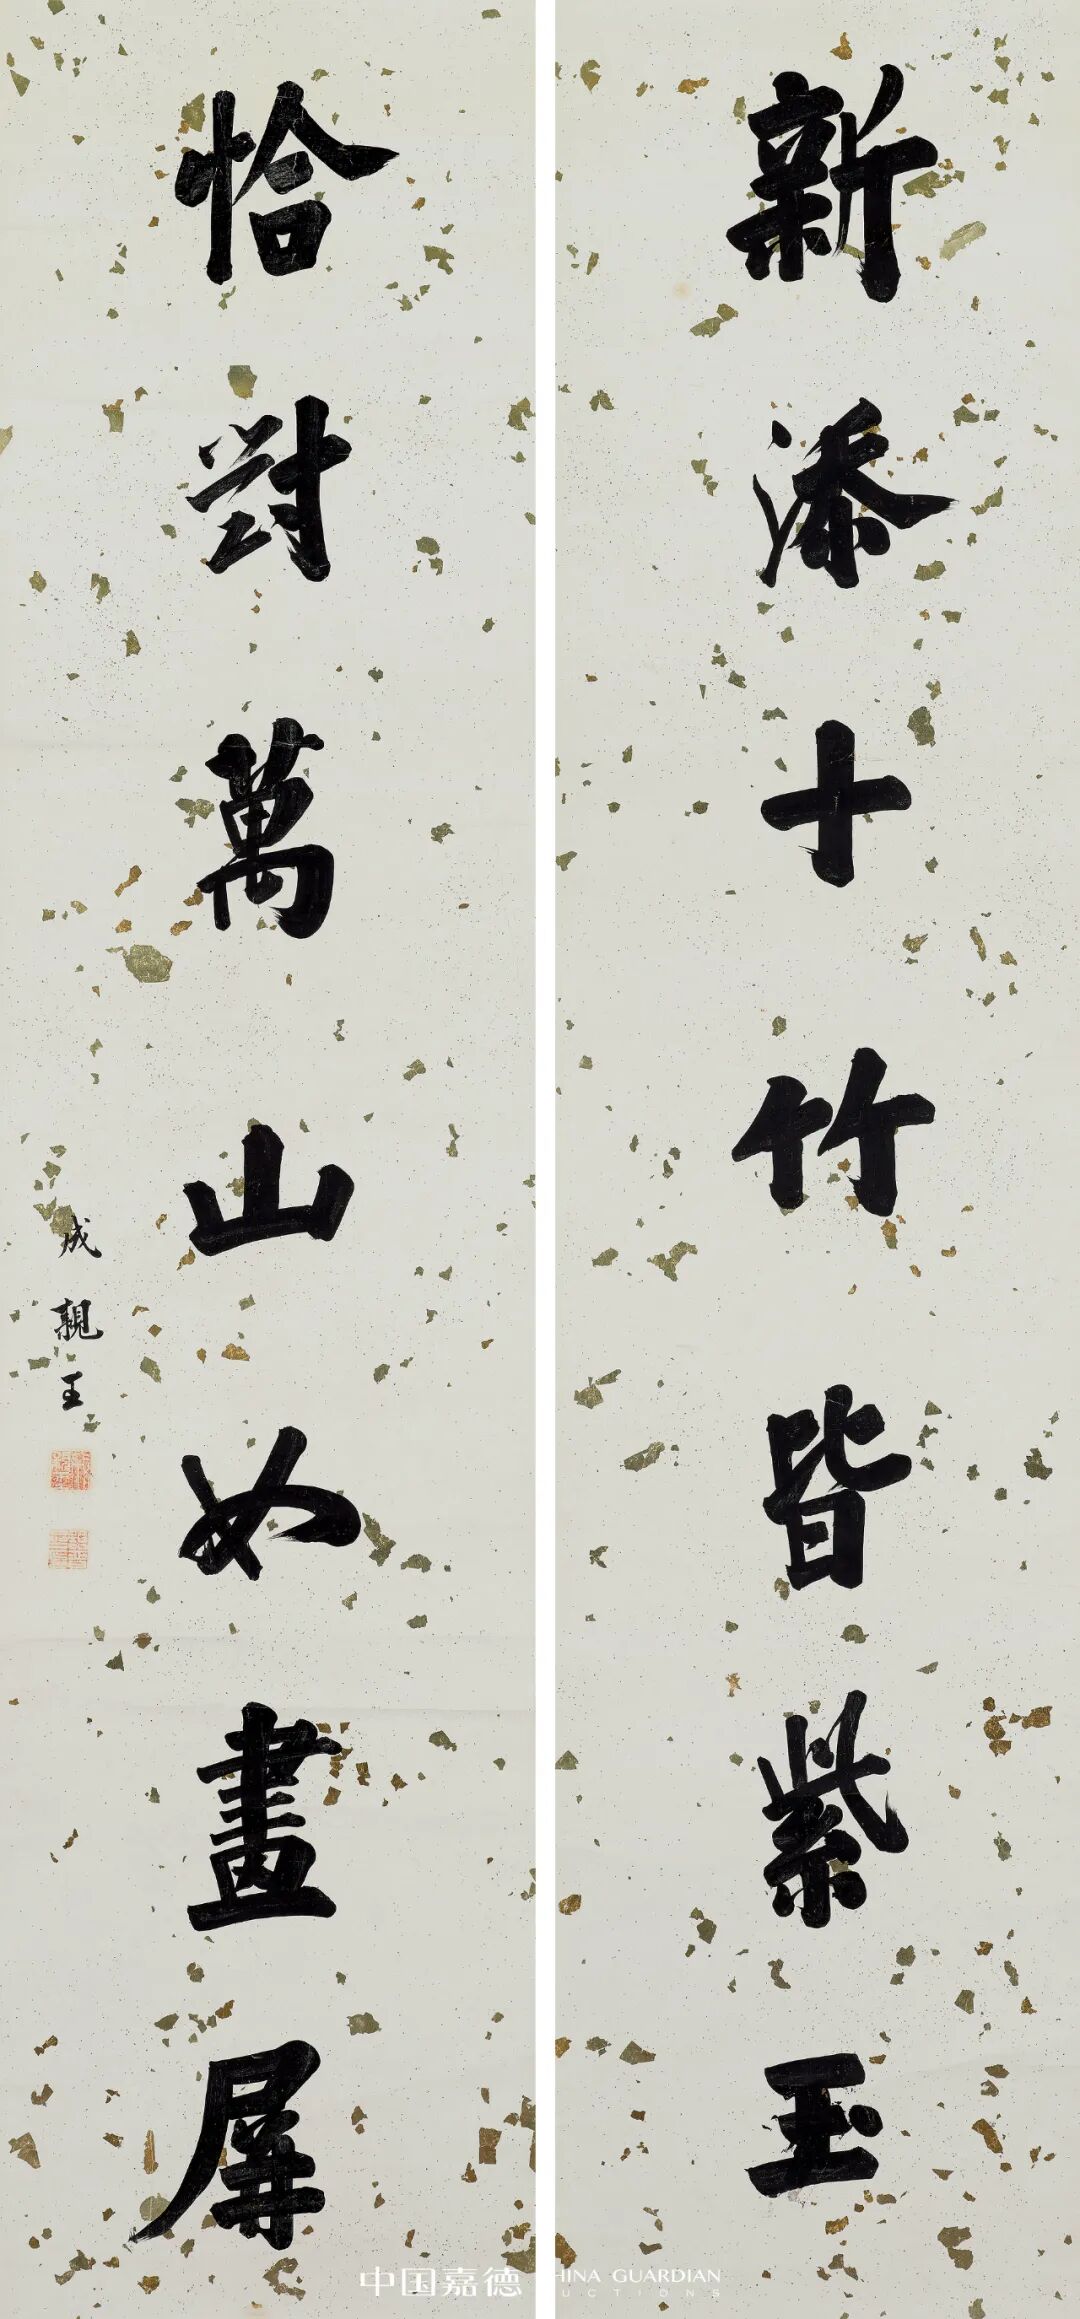 新添十竹皆紫玉
恰對萬山如畫屏
成親王
中国嘉德
HINA GUARDIAN
UCTIONS